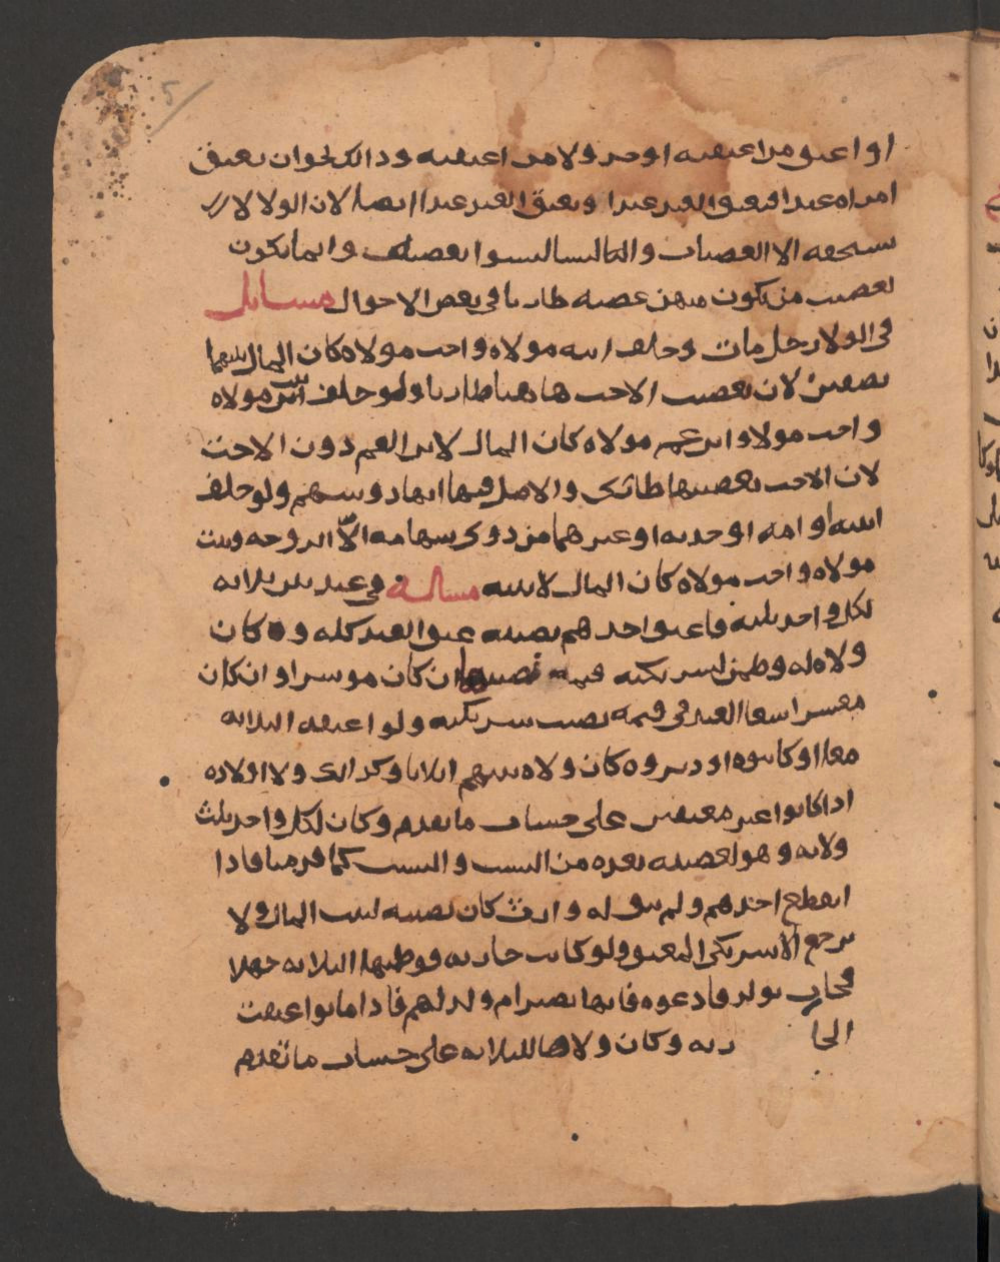 5
او اعتق من اعتقنه او جر ولا من اعتقنه وذالك نحو ان تعتق
امراه عبدا فيعتق العبد عبدا ويعتق العبد عبدا ايضا لان الولا لا
يستحقه الا العصبات والنسا ليسوا بعصبات وانما يكون
تعصيب من يكون منهن عصبه طاريا في بعض الاحوال مسايل
في الولا رجل مات وخلف ابنه مولاه واخت مولاه كان المال بينهما
نصفين لان تعصيب الاخت هاهنا طاريا ولو خلف ابنت مولاه
واخت مولاه وابن عم مولاه كان المال لابن العم دون الاخت
لان الاخت تعصيبها طاري والاصل فيها انها ذو سهم ولو خلف
ابنته او امه او جدته او غيرهما من ذوي سهامه الا الزوجه وبنت
مولاه واخت مولاه كان المال لابنته مساله في عبد بين ثلاثه
لكل واحد ثلثه فاعتق واحد هم نصيبه عتق العبد كله وكان
ولاه له وضمن لشريكيه قيمة نصيبهما ان كان موسرا وان كان
معسرا سعا العبد في قيمه نصيب شريكيه ولو اعتقه الثلاثه
معا او كاتبوه او دبروه كان ولاه بينهم اثلاثا وكذالك ولا اولاده
اذا كانوا غير معتقين على حساب ما تقدم وكان لكل واحد ثلث
ولايه وهو لعصبته بعده من النسب والسبب كما قدمنا فاذا
انقطع احدهم ولم يبق له وارث كان نصيبه لبيت المال ولا
يرجع الا شريكي المعتق ولو كانت جاريه فوطيها الثلاثه جهلا
فجات بولد فادعوه فانها تصير ام ولد لهم فاذا ماتوا عتقت
الجاريه وكان ولاها للثلاثه على حساب ما تقدم